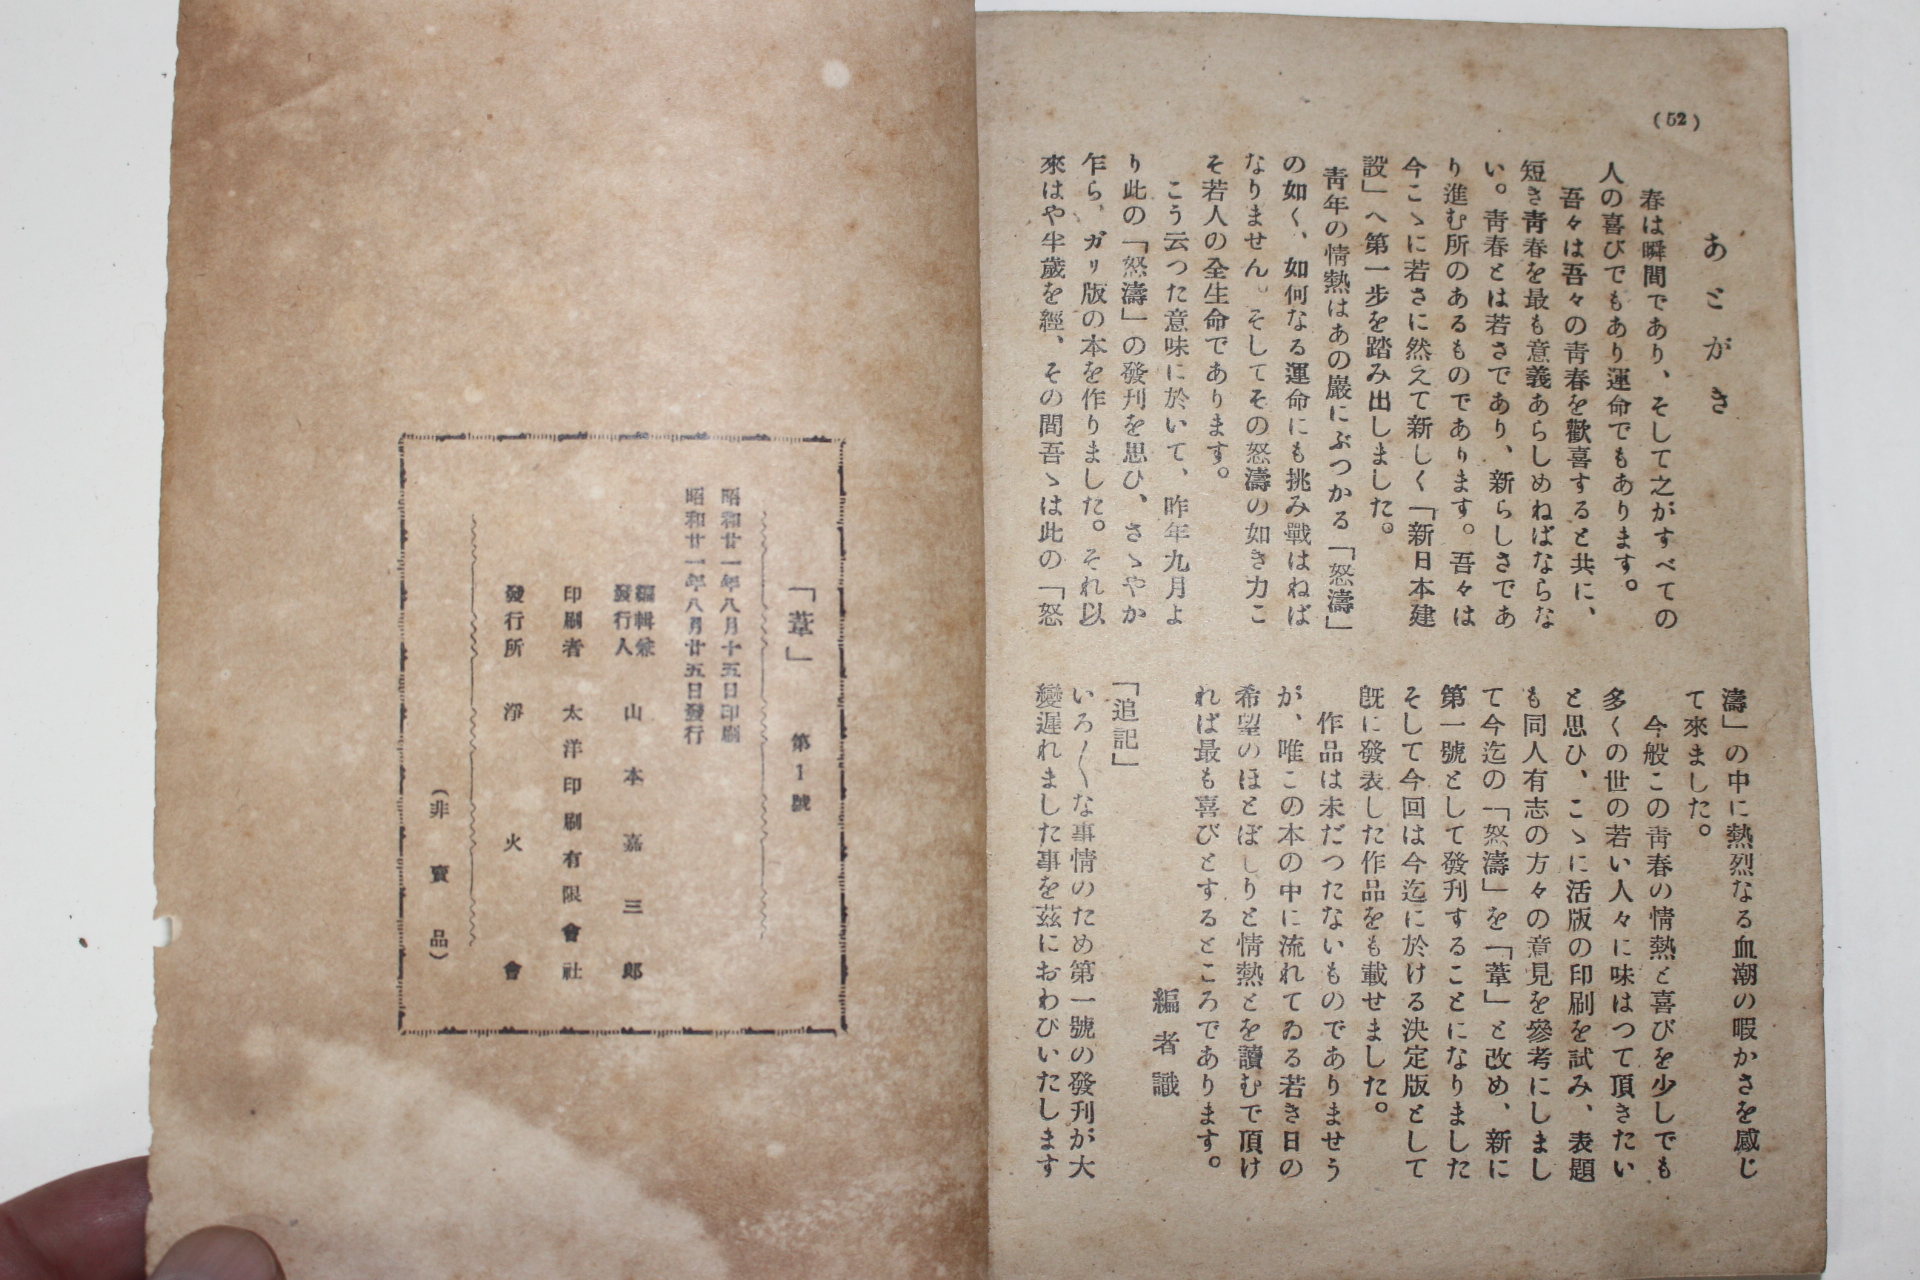 (52)
あとがき
春は瞬間であり、そして之がすべての
人の喜びでもあり運命でもあります。
吾々は吾々の靑春を歡喜すると共に、
短き靑春を最も意義あらしめねばならな
い。靑春とは若さであり、新らしさであ
り進む所のあるものであります。吾々は
今こゝに若さに然えて新しく「新日本建
設」へ第一步を踏み出しました。
靑年の情熱はあの巖にぶつかる「怒濤」
の如く、如何なる運命にも挑み戰はねば
なりません。そしてその怒濤の如き力こ
そ若人の全生命であります。
こう云つた意味に於いて、昨年九月よ
り此の「怒濤」の發刊を思ひ、さゝやか
乍ら、ガリ版の本を作りました。それ以
來はや半歲を經、その間吾ゝは此の「怒
濤」の中に熱烈なる血潮の暖かさを感じ
て來ました。
今般この靑春の情熱と喜びを少しでも
多くの世の若い人々に味はつて頂きたい
と思ひ、こゝに活版の印刷を試み、表題
も同人有志の方々の意見を參考にしまし
て今迄の「怒濤」を「葦」と改め、新に
第一號として發刊することになりました
そして今回は今迄に於ける決定版として
旣に發表した作品をも載せました。
作品は未だつたないものでありませう
が、唯この本の中に流れてゐる若き日の
希望のほとばしりと情熱とを讀むで頂け
れば最も喜びとするところであります。
編者識
「追記」
いろ〳〵な事情のため第一號の發刊が大
變遲れました事を茲におわびいたします
「葦」 第1號
昭和廿一年八月十五日印刷
昭和廿一年八月廿五日發行
編輯兼發行人 山本嘉三郎
印刷者 太洋印刷有限會社
發行所 淨火會
(非賣品)